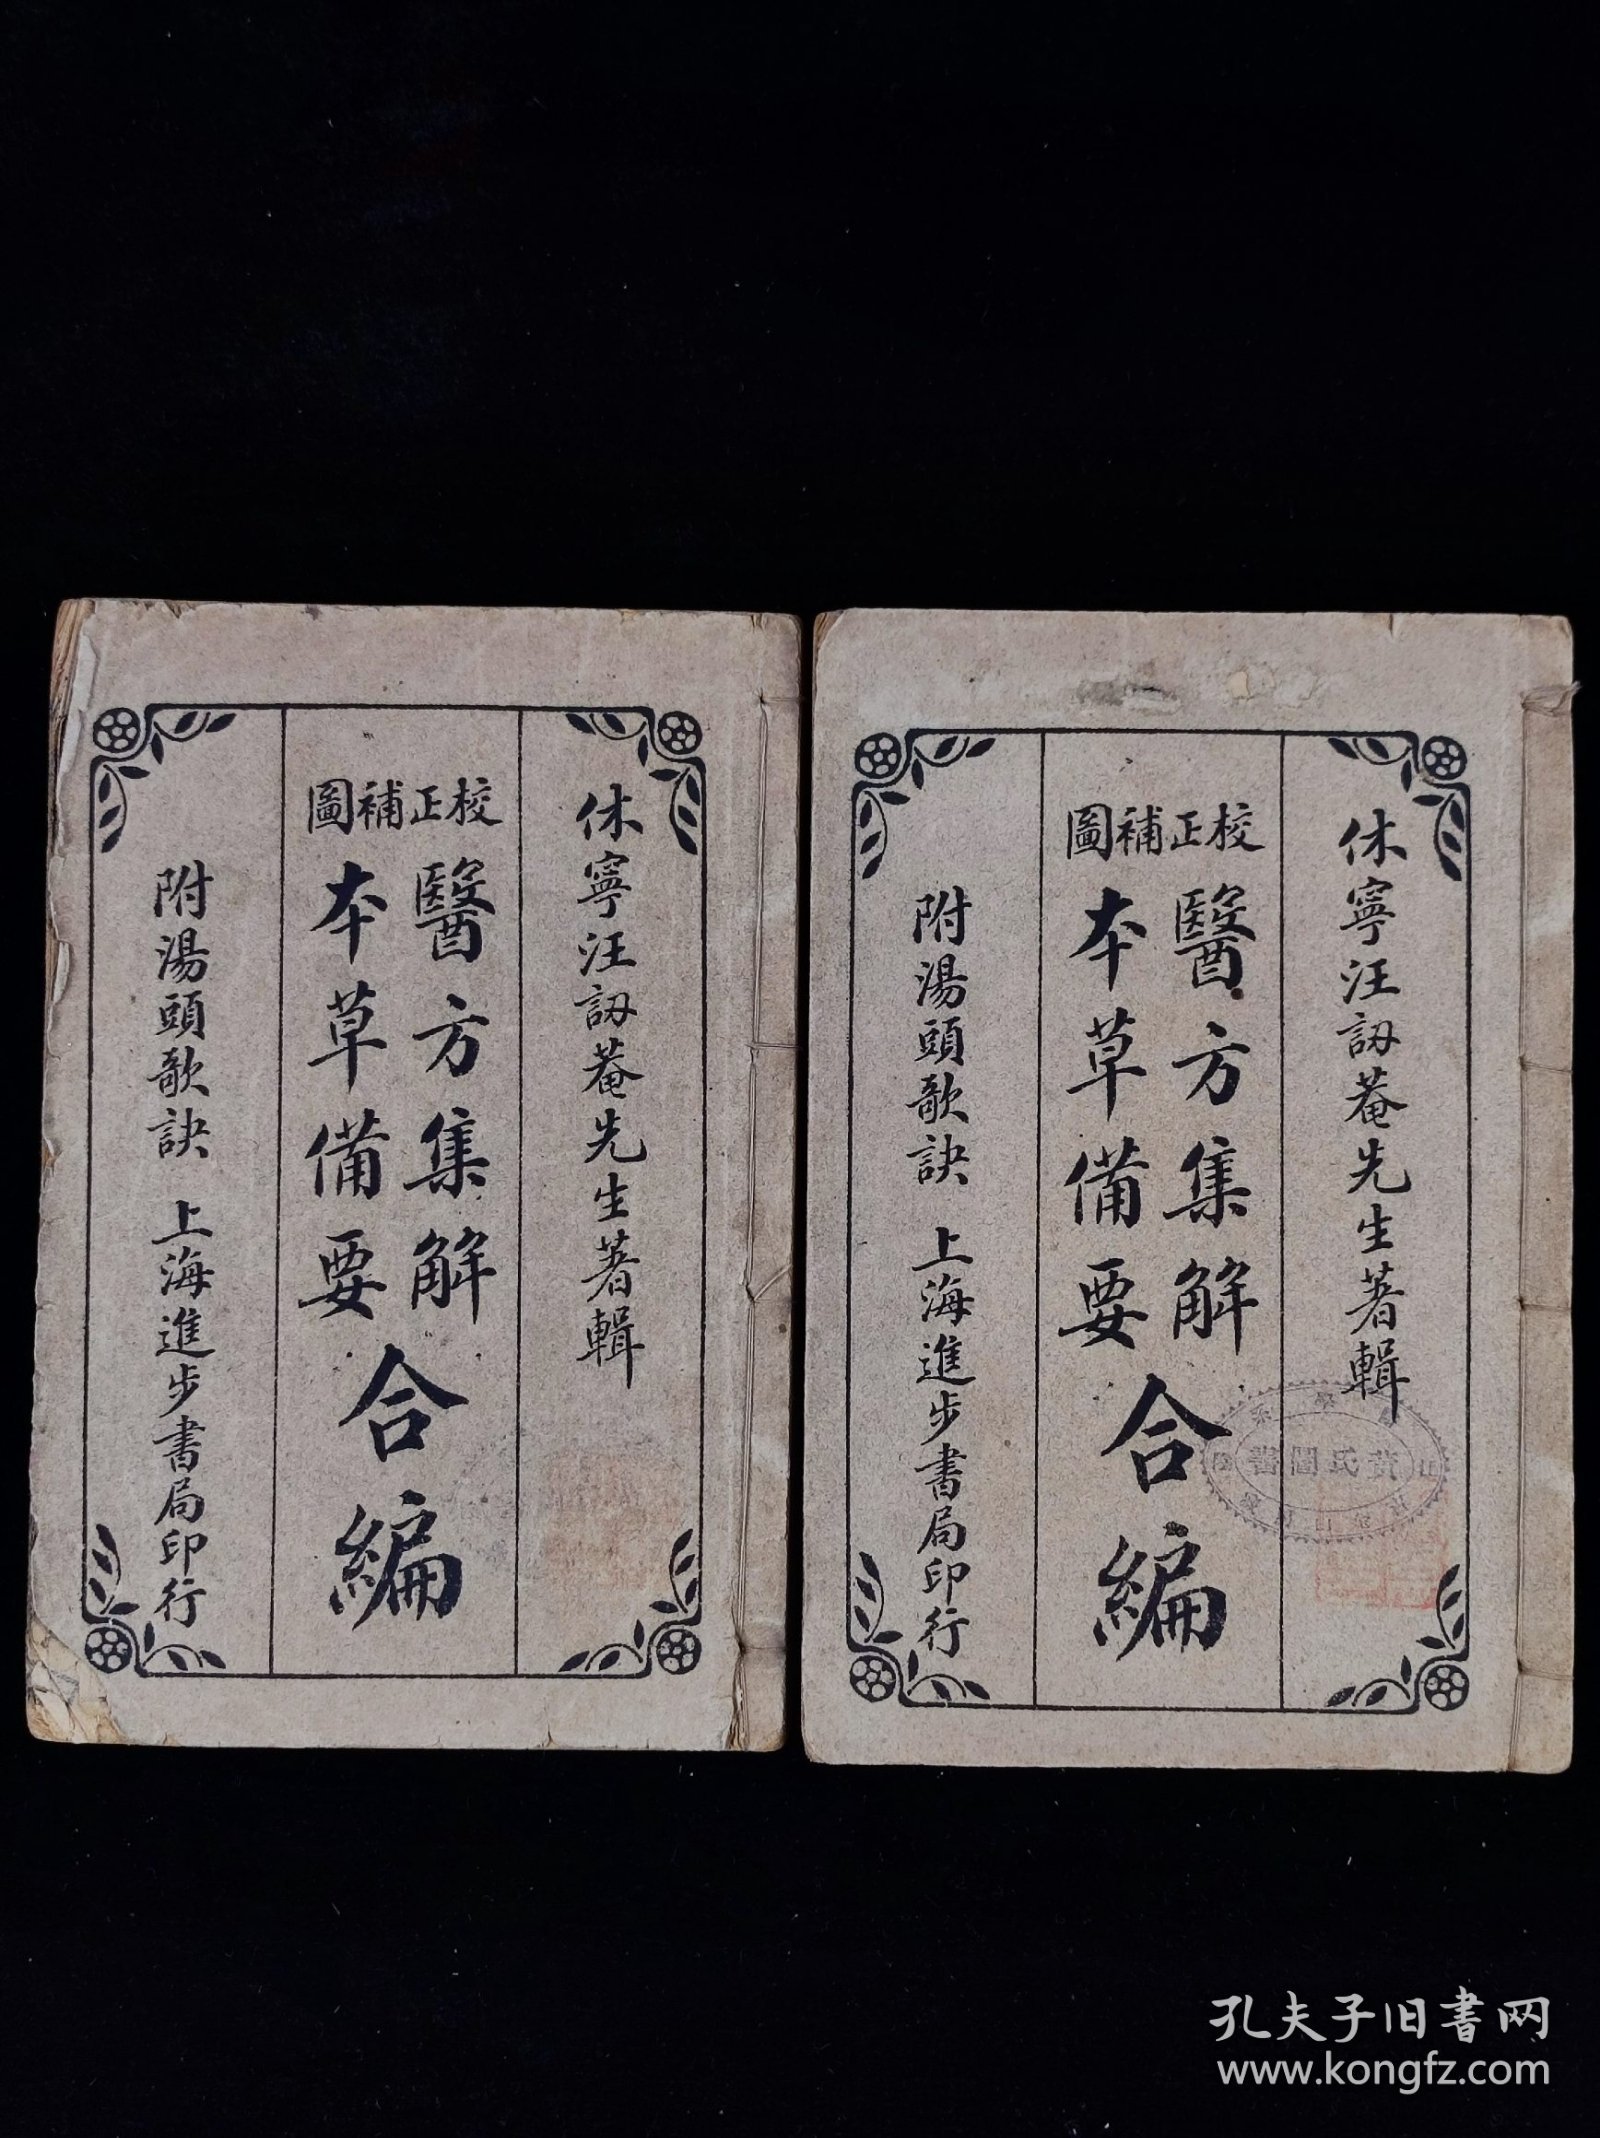 休寧汪訒菴先生著輯
校正補圖
醫方集解
本草備要
合編
附湯頭歌訣 上海進步書局印行
休寧汪訒菴先生著輯
校正補圖
醫方集解
本草備要
合編
附湯頭歌訣 上海進步書局印行
黃氏圖書
孔夫子旧书网
www.kongfz.com